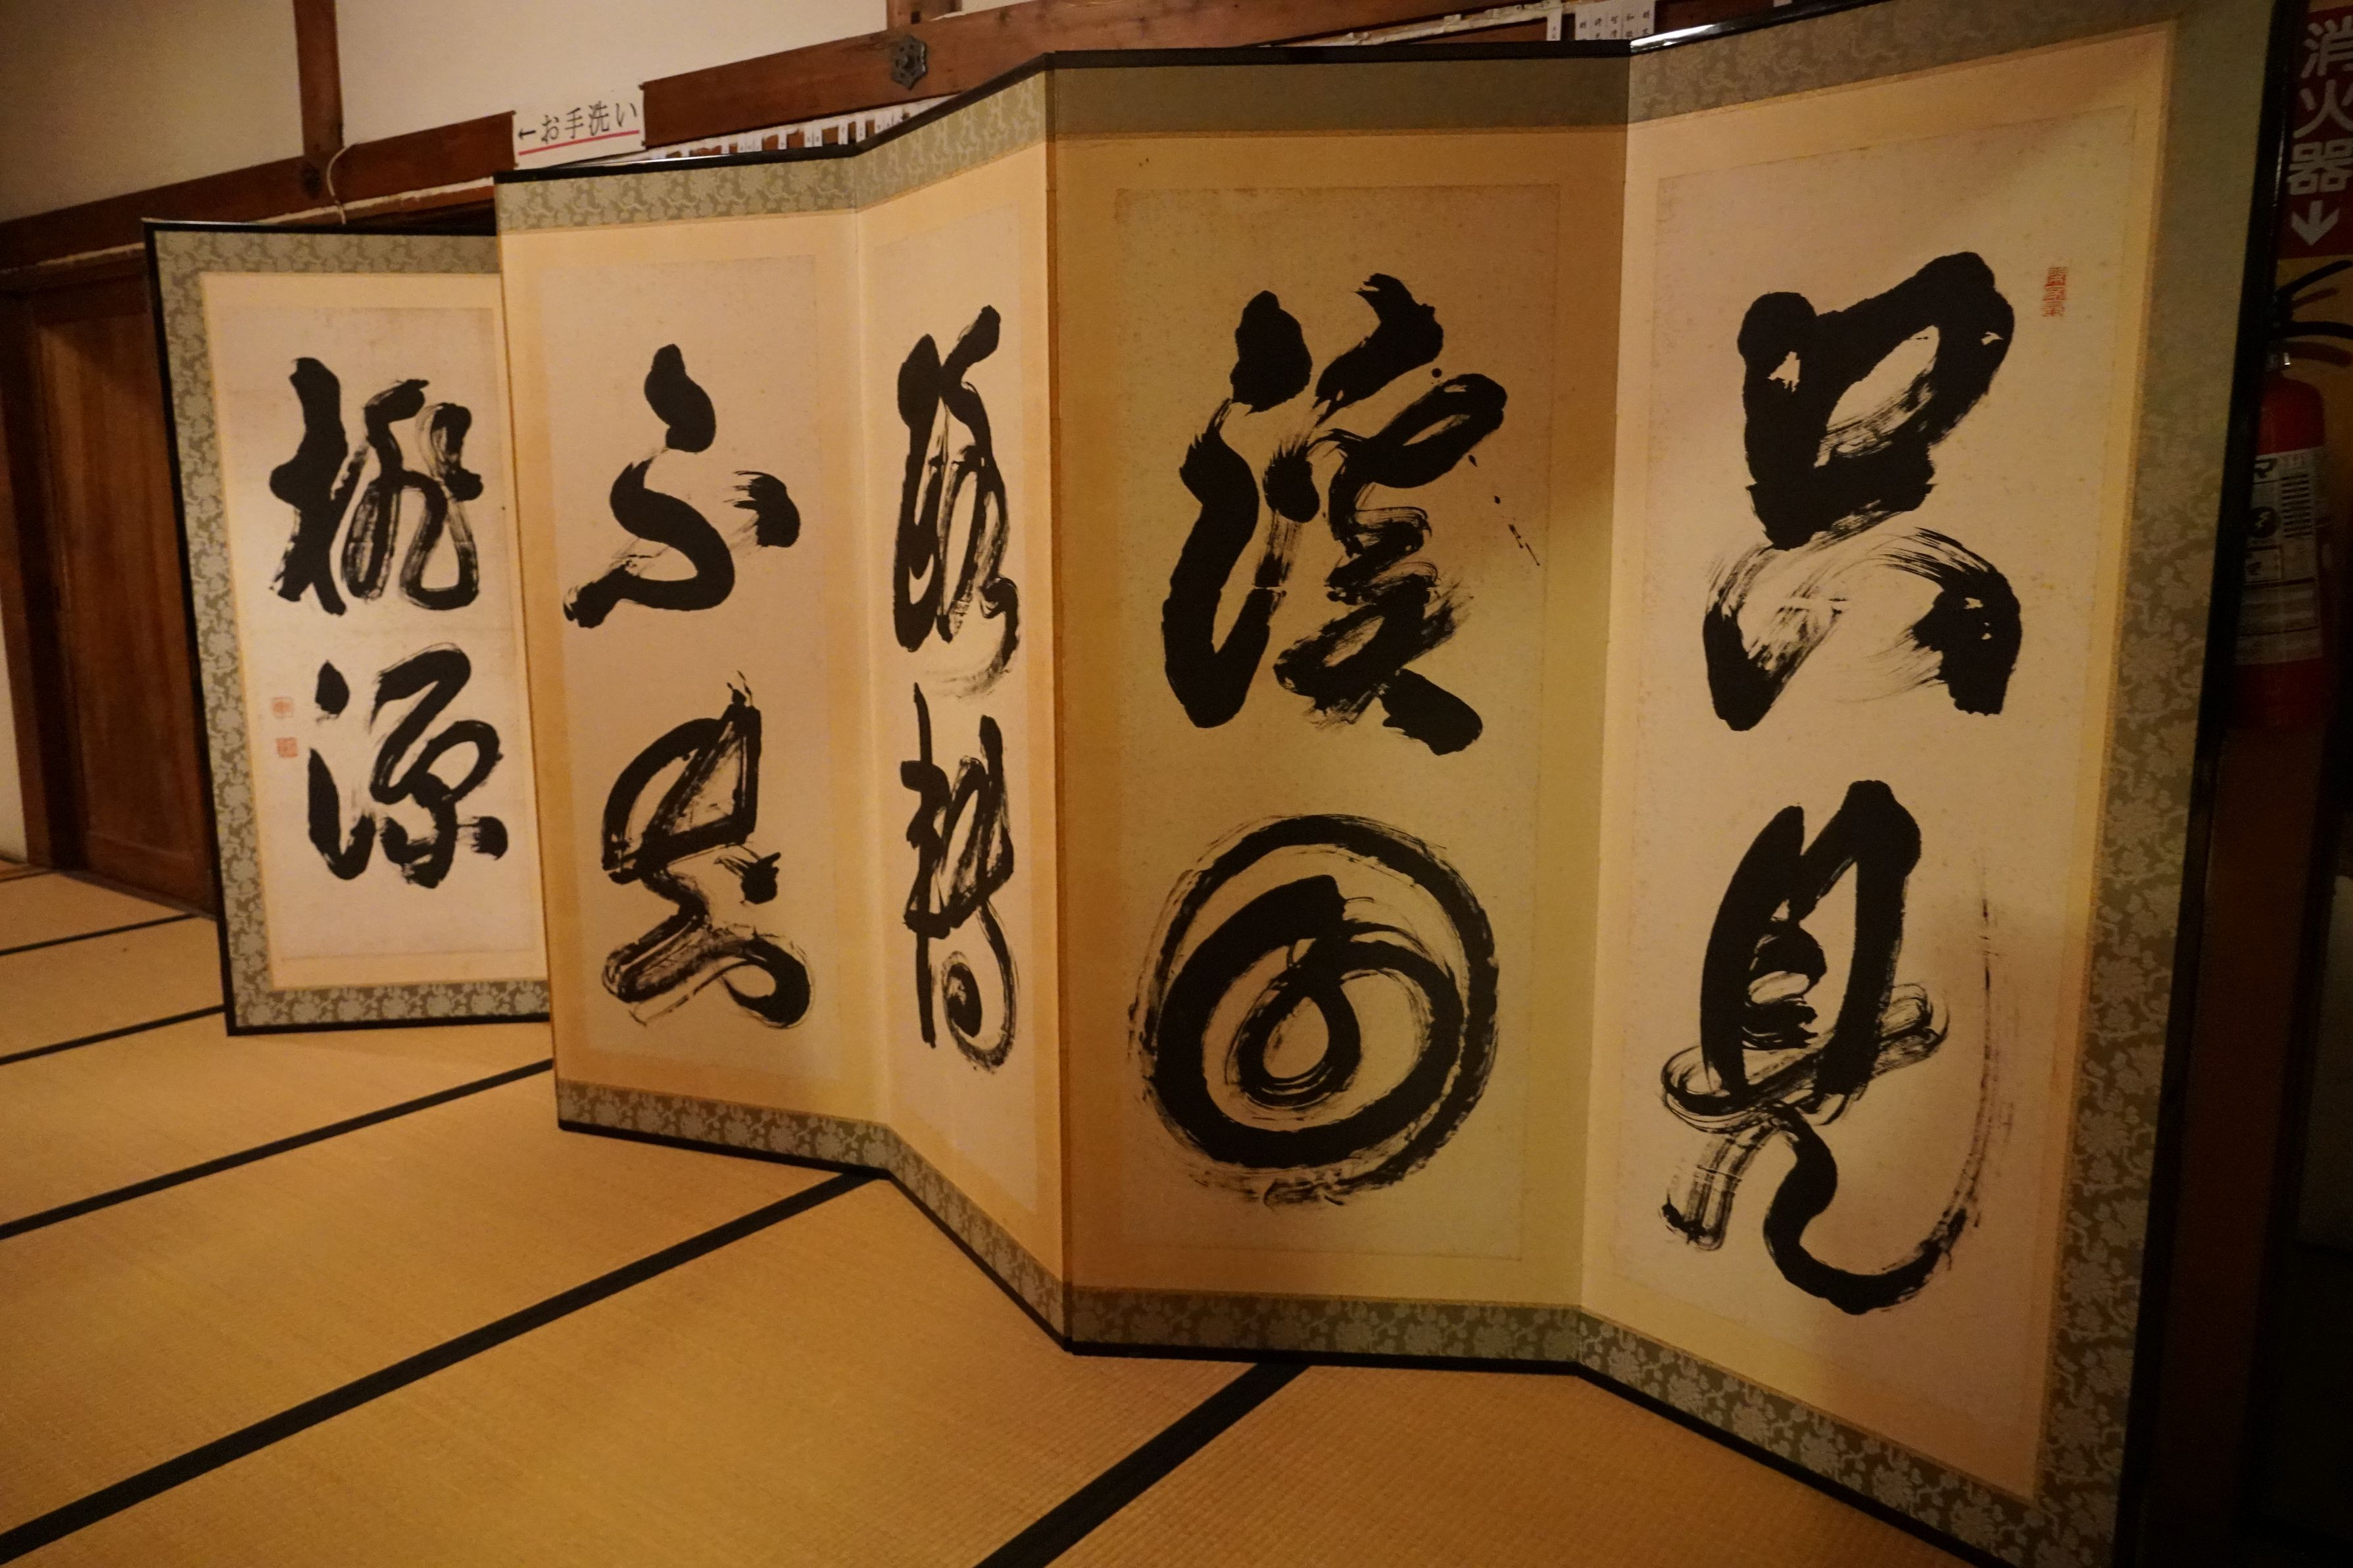 只見
溪回
路轉
不知
桃源
←お手洗い
消火器↓